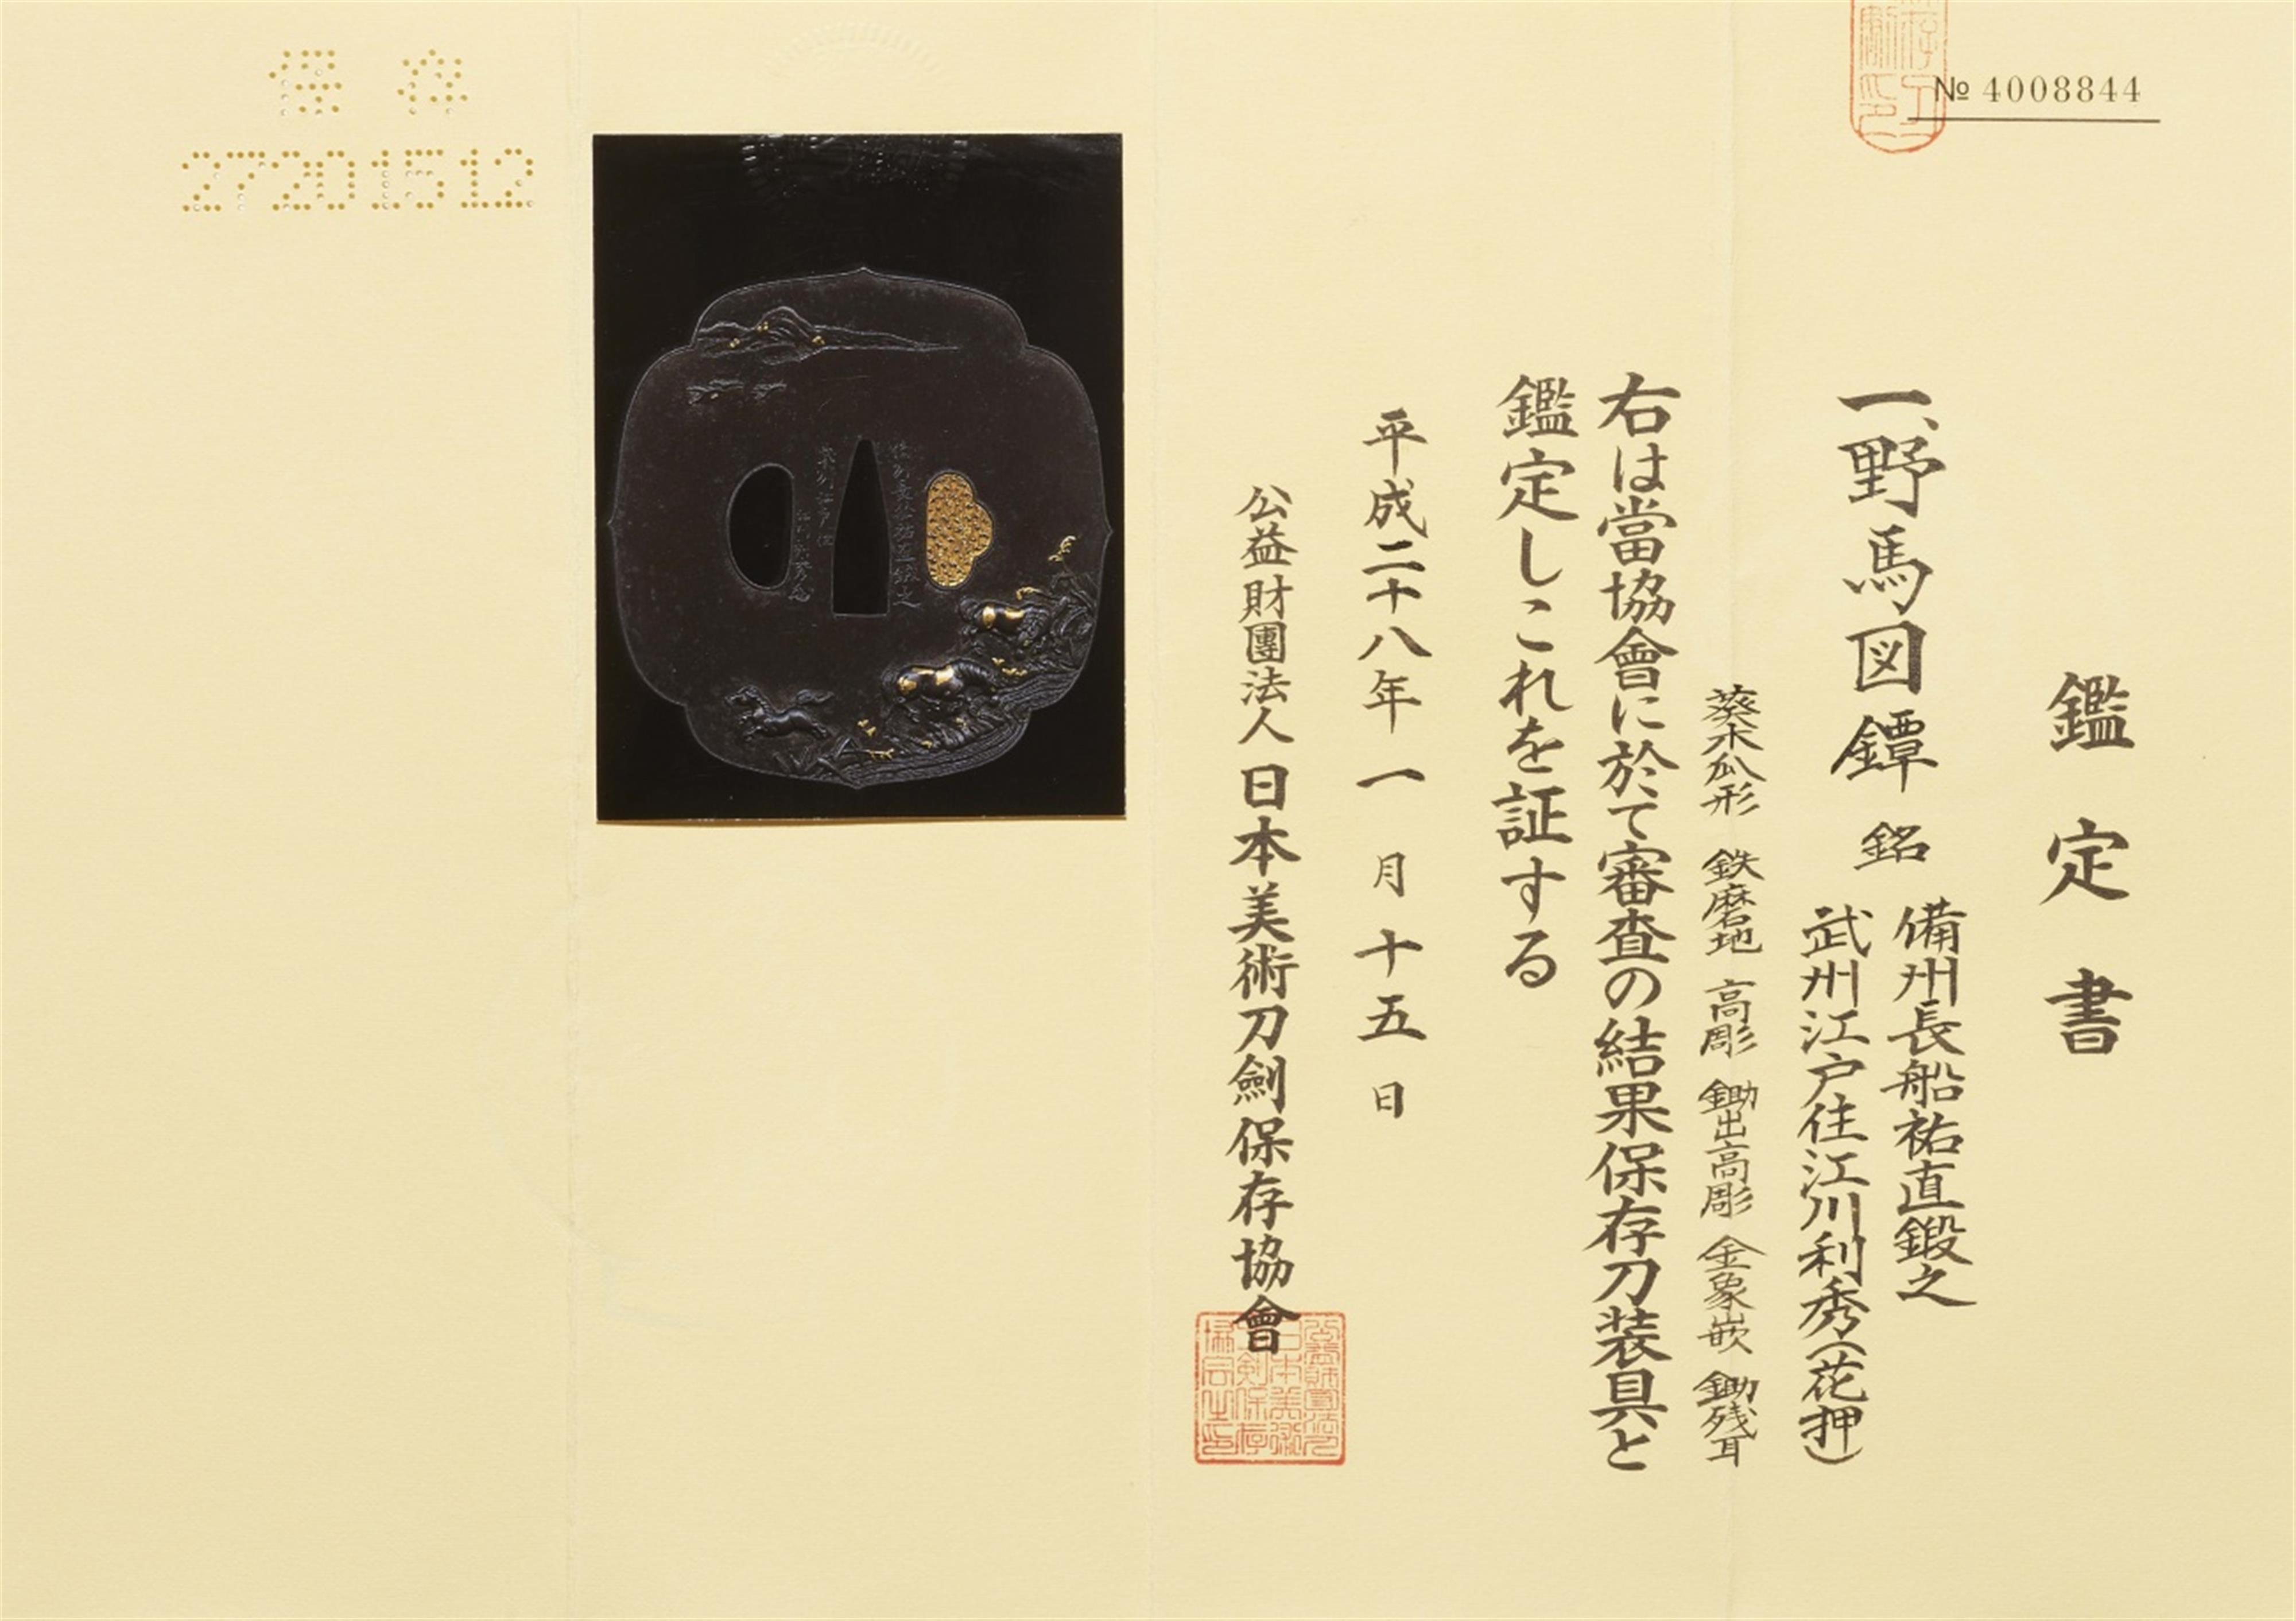 № 4008844
鑑定書
一、野馬図鐔 銘
備州長船祐直鍛之
武州江戸住江川利秀(花押)
葵木瓜形 鉄磨地 高彫 鋤出高彫 金象嵌 鋤残耳
右は當協會に於て審査の結果保存刀装具と
鑑定しこれを証する
平成二十八年一月十五日
公益財團法人 日本美術刀劍保存協會
保存
27201512